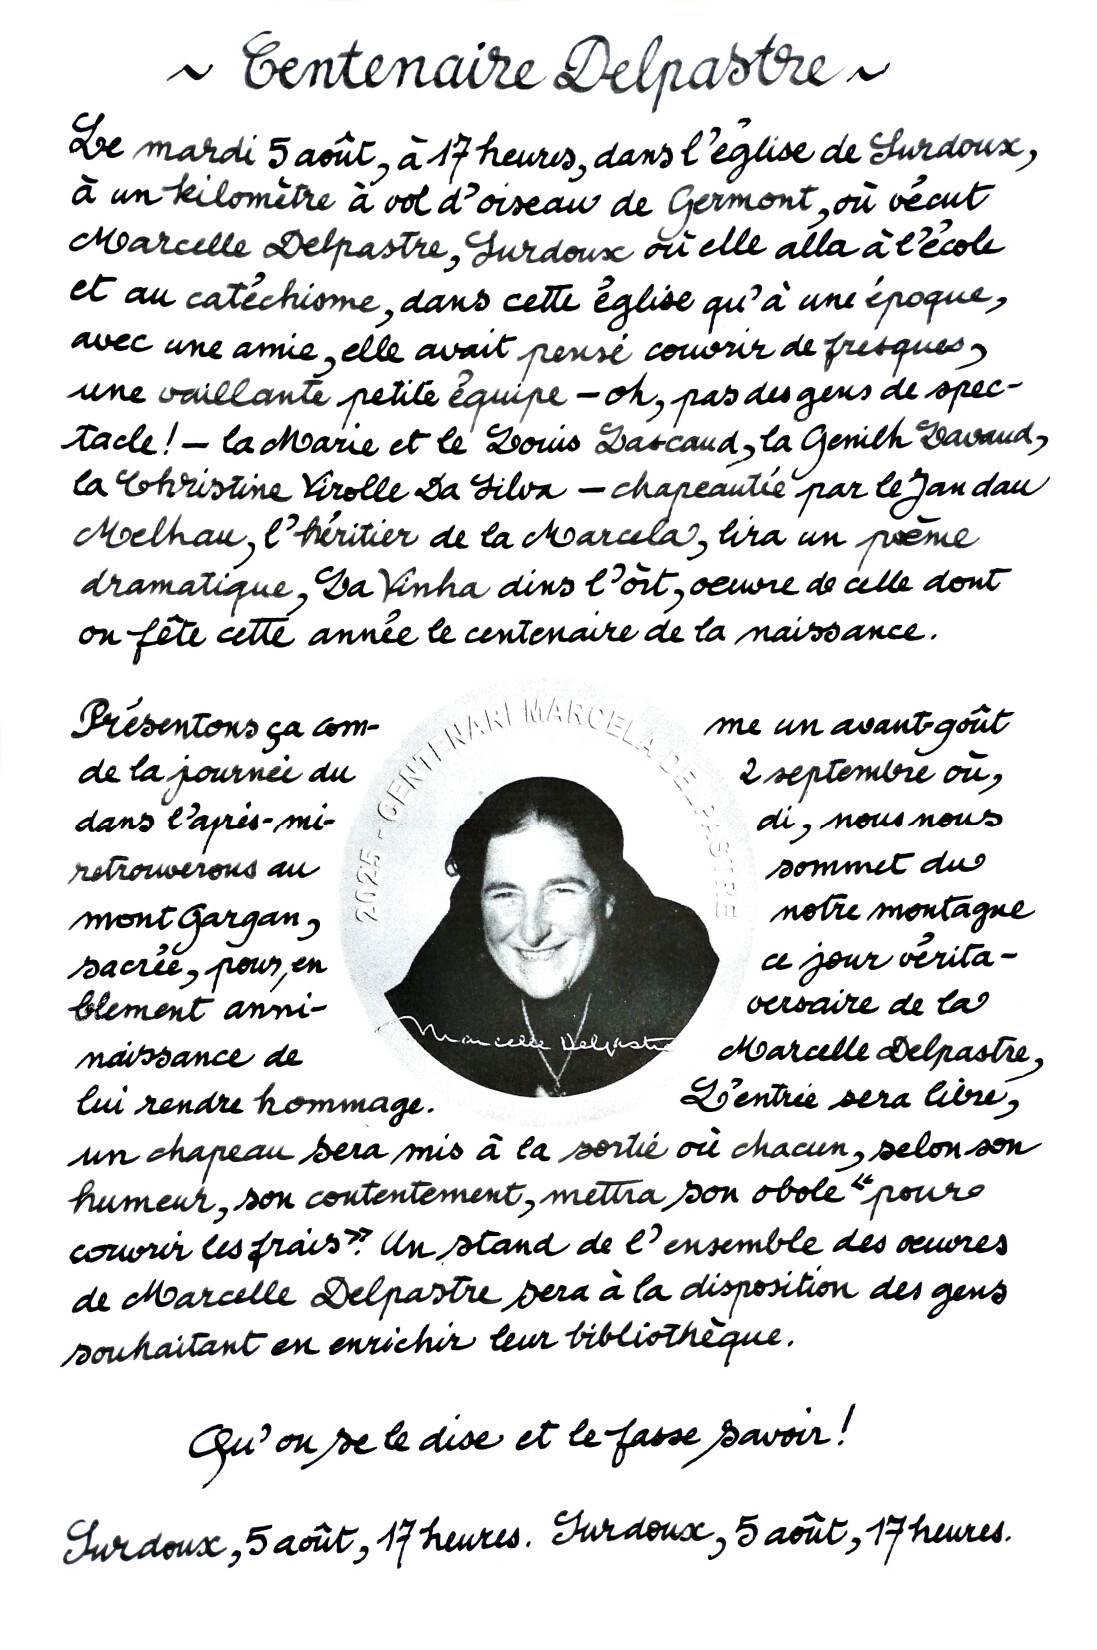 ~ Centenaire Delpastre ~
Le mardi 5 août, à 17 heures, dans l'église de Surdoux,
à un kilomètre à vol d'oiseau de Germont, où vécut
Marcelle Delpastre, Surdoux où elle alla à l'école
et au catéchisme, dans cette église qu'à une époque,
avec une amie, elle avait pensé couvrir de fresques,
une vaillante petite équipe – oh, pas des gens de spec-
tacle ! – la Marie et le Louis Lascaud, la Genilh Lavaud,
la Christine Virolle Da Silva – chapeautée par le Jan dau
Melhau, l'héritier de la Marcela, lira un poème
dramatique, La Vinha dins l'òrt, oeuvre de celle dont
on fête cette année le centenaire de la naissance.
Présentons ça com- me un avant-goût
de la journée du 2 septembre où,
dans l'après-mi- di, nous nous
retrouverons au sommet du
mont Gargan, notre montagne
sacrée, pour, en ce jour vérita-
blement anni- versaire de la
naissance de Marcelle Delpastre,
lui rendre hommage. L'entrée sera libre,
2025 - CENTENARI MARCELA DELPASTRE
Marcelle Delpastre
un chapeau sera mis à la sortie où chacun, selon son
humeur, son contentement, mettra son obole "pour
couvrir les frais". Un stand de l'ensemble des oeuvres
de Marcelle Delpastre sera à la disposition des gens
souhaitant en enrichir leur bibliothèque.
Qu'on se le dise et le fasse savoir !
Surdoux, 5 août, 17 heures. Surdoux, 5 août, 17 heures.